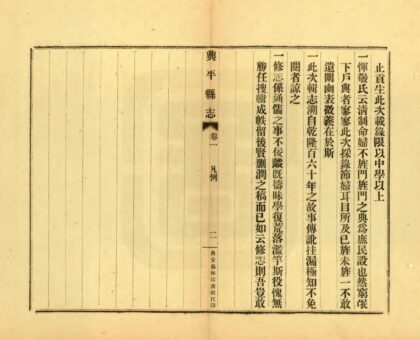 止貢生此次載錄限以中學以上
一惲敬氏云清制命婦不旌門旌門之典為庶民設也然窮氓
下戶與者寥寥此次採錄節婦耳目所及已旌未旌一不敢
遺闡幽表微義在於斯
一此次輯志溯自乾隆百六十年之故事傳訛挂漏極知不免
閱者諒之
一修志係通儒之事不佞疇昧學復荒落濫竽斯役愧無
勝任搜輯成帙留後賢刪潤之稿而已如云修志則吾豈敢
興平縣志
卷一
凡例
二
西安藝林印書社代印